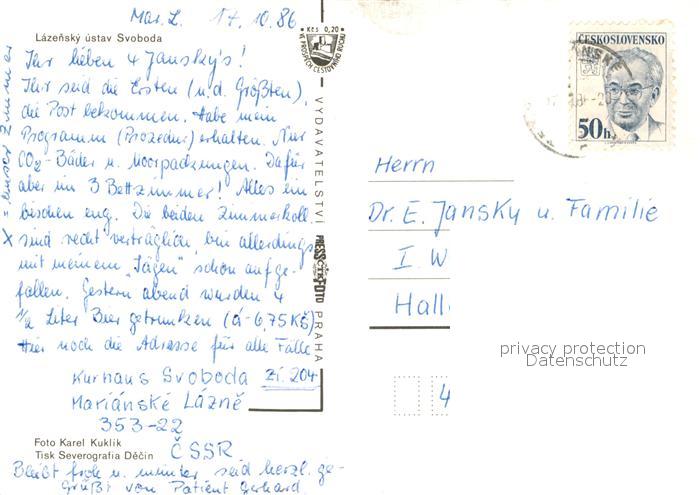 Mar. L. 17.10.86
Lázeňský ústav Svoboda
Ihr lieben 4 Jansky's!
Ihr seid die Ersten (u. d. Größten),
die Post bekommen. Habe mein
Programm (Prozedur) erhalten. Nur
CO2-Bäder u. Moorpackungen. Dafür
aber im 3 Bettzimmer! Alles ein
bischen eng. Die beiden Zimmerkoll
sind recht verträglich, bin allerdings
mit meinem "Sägen" schon aufge-
fallen. Gestern abend wurden 4
1/2 Liter Bier getrunken (á-6,75 Kčs)
Hier noch die Adresse für alle Fälle
Kurhaus Svoboda Zi. 204
Mariánské Lázně
353-22
ČSSR
Foto Karel Kuklík
Tisk Severografia Děčín
Bleibt froh u. munter seid herzl. ge-
grüßt von Patient Gerhard
X = unser Zimmer
Kčs 0,20
VE PROSPĚCH CESTOVNÍHO RUCHU
VYDAVATELSTVÍ PRESSFOTO PRAHA
ČESKOSLOVENSKO
50h
Herrn
Dr. E. Jansky u. Familie
I. W
Hall
4
privacy protection
Datenschutz